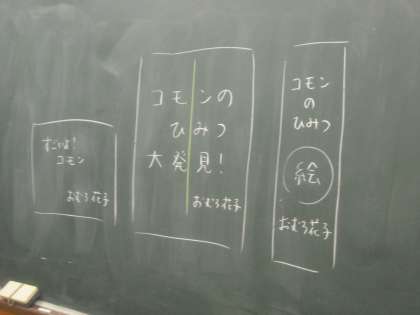 すごいよ!
コモン
おむろ花子
コモンの
ひみつ
大発見!
おむろ花子
コモン
の
ひみつ
絵
おむろ花子